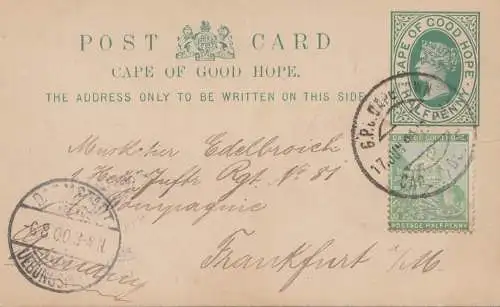 POST CARD
CAPE OF GOOD HOPE.
THE ADDRESS ONLY TO BE WRITTEN ON THIS SIDE
CAPE OF GOOD HOPE
HALFPENNY
G.P.O. CAPE
17 JUN
POSTAGE HALFPENNY
Musketier Edelbroich
1 Hess Inftr Rgt. No 81
Compagnie
Frankfurt a/M.
Germany